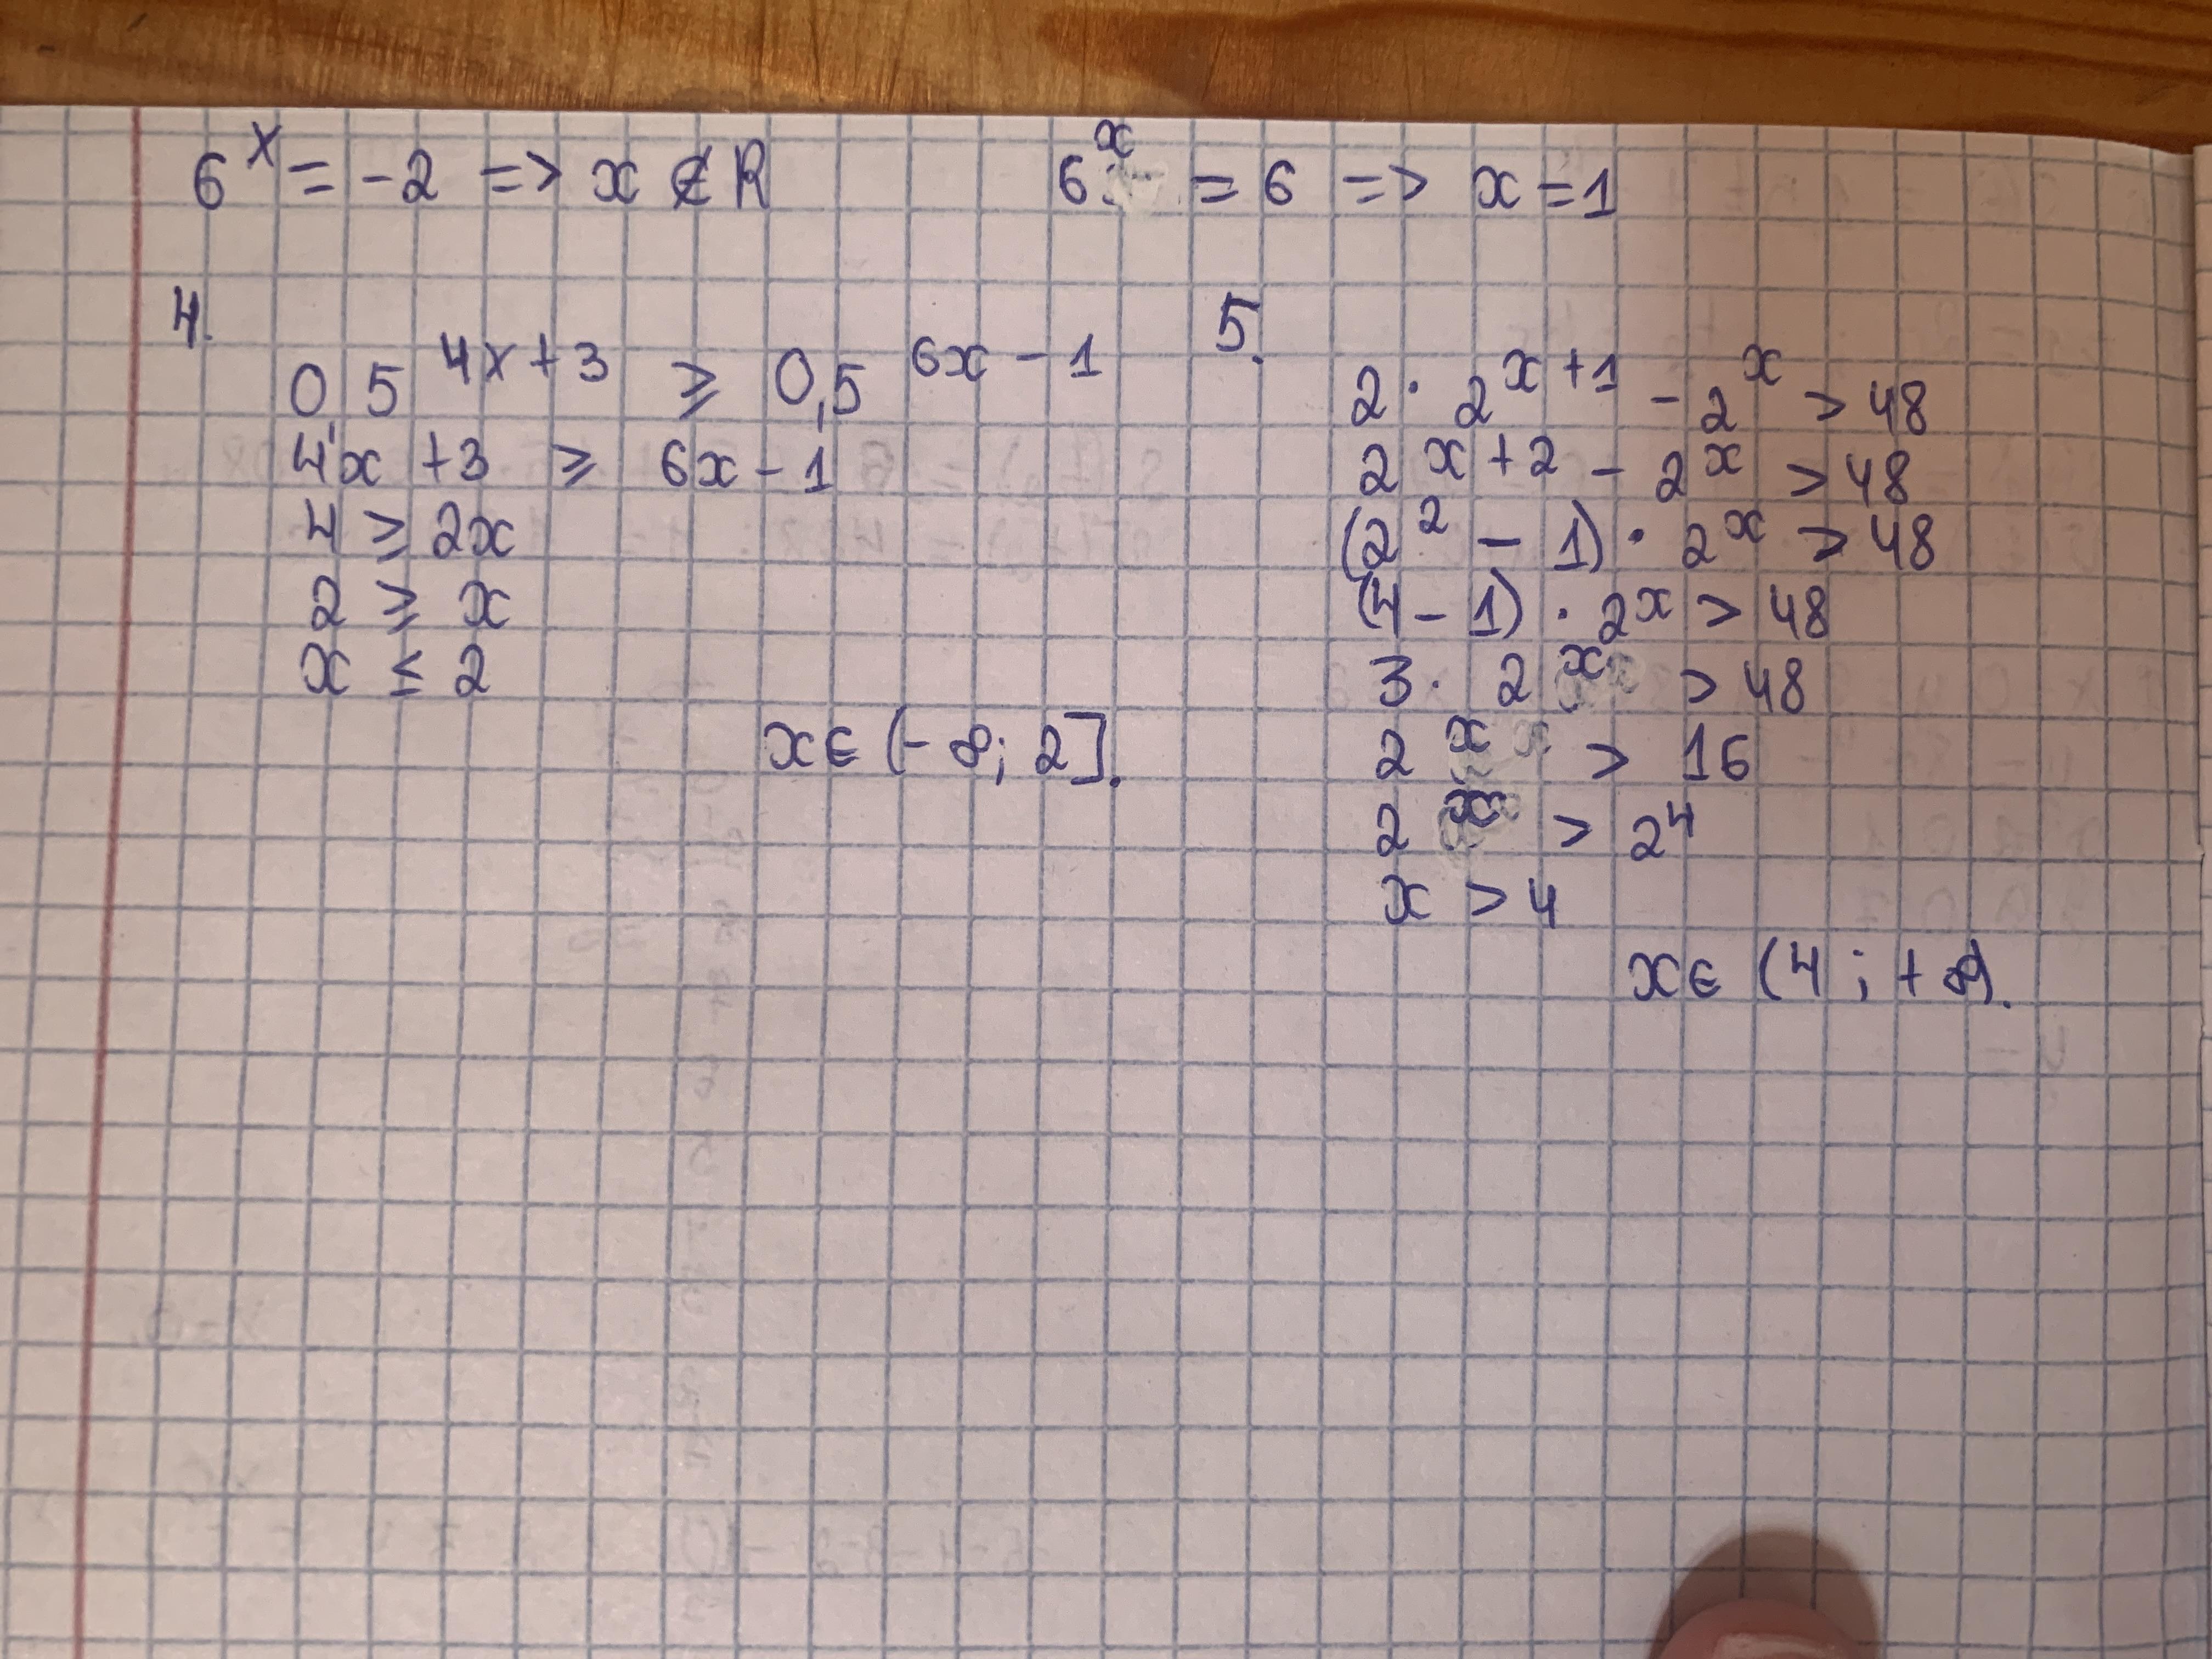 6^x = -2 => x ∉ R 6^x = 6 => x = 1
4.
0,5^{4x+3} ≥ 0,5^{6x-1}
4x + 3 ≥ 6x - 1
4 ≥ 2x
2 ≥ x
x ≤ 2
x ∈ (-∞; 2].
5.
2 · 2^{x+1} - 2^x > 48
2^{x+2} - 2^x > 48
(2^2 - 1) · 2^x > 48
(4 - 1) · 2^x > 48
3 · 2^x > 48
2^x > 16
2^x > 2^4
x > 4
x ∈ (4; +∞).